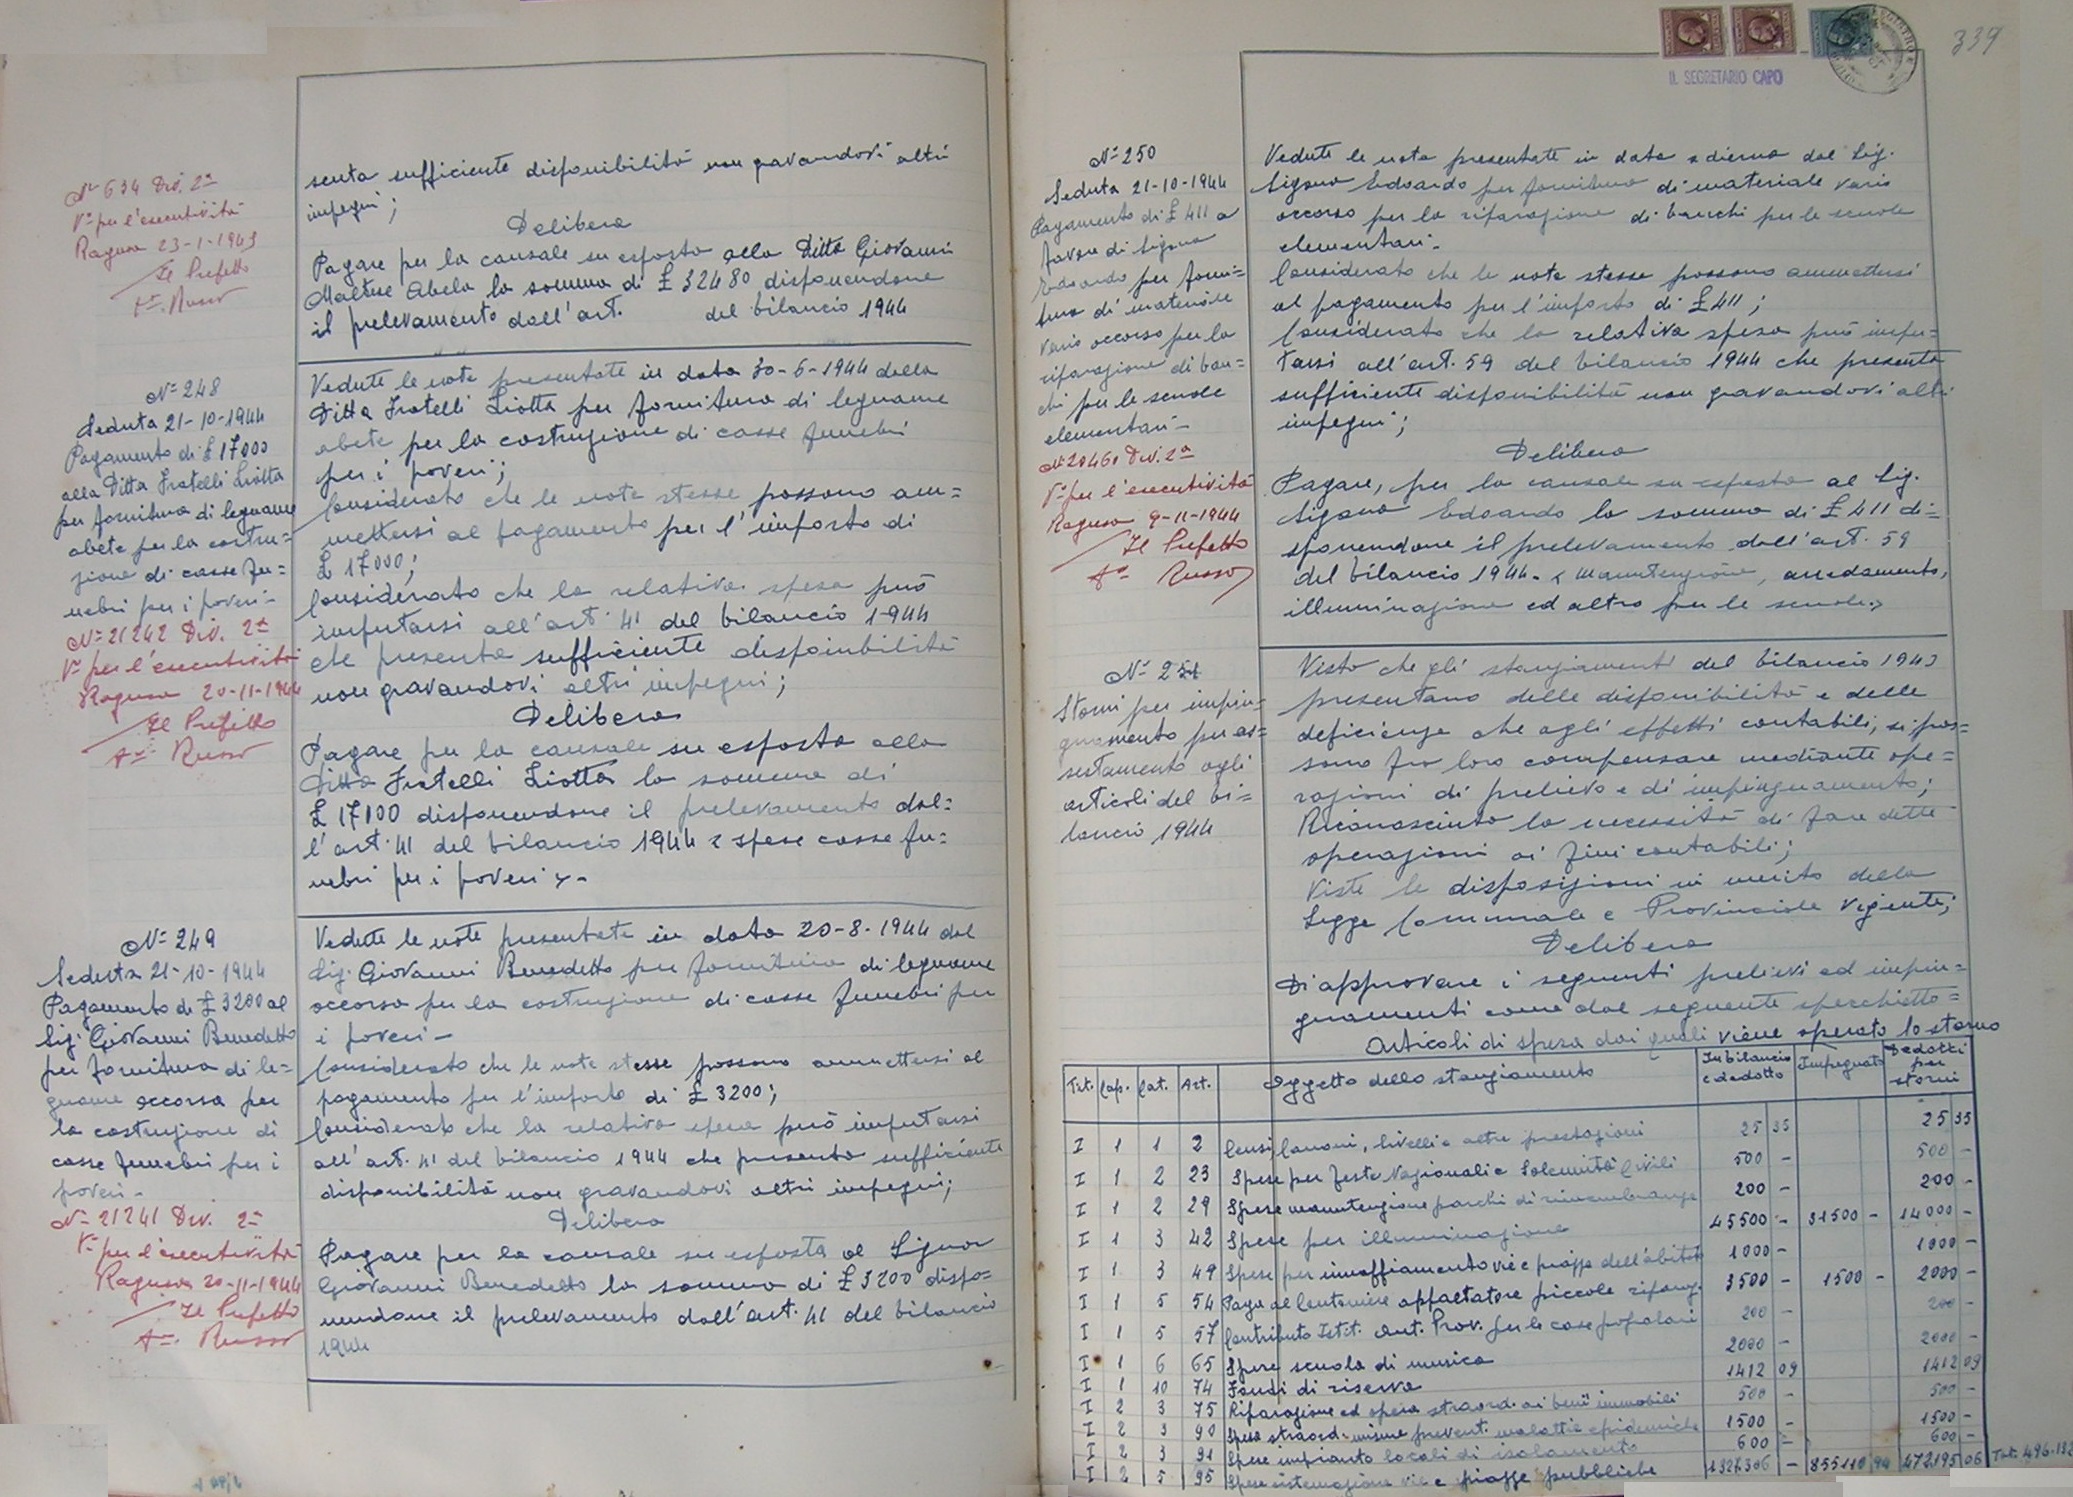 senta sufficiente disponibilità non gravandovi altri
impegni;
Delibera
Pagare per la causale su esposta alla Ditta Giovanni
Maltese Abela la somma di £ 32480 disponendone
il prelevamento dall'art. del bilancio 1944
N° 634 Div. 2ª
V° per l'esecutività
Ragusa 23-1-1945
Il Prefetto
Russo
N° 248
Seduta 21-10-1944
Pagamento di £ 17000
alla Ditta Fratelli Liotta
per fornitura di legname
abete per la costru=
zione di casse fu=
nebri per i poveri-
N° 21242 Div. 2ª
V° per l'esecutività
Ragusa 20-11-1944
Il Prefetto
Russo
Vedute le note presentate in data 30-6-1944 dalla
Ditta Fratelli Liotta per fornitura di legname
abete per la costruzione di casse funebri
per i poveri;
Considerato che le note stesse possono am=
mettersi al pagamento per l'importo di
£ 17000;
Considerato che la relativa spesa può
imputarsi all'art. 41 del bilancio 1944
che presenta sufficiente dispoinbilità
non gravandovi altri impegni;
Delibera
Pagare per la causale su esposta alla
Ditta Fratelli Liotta la somma di
£ 17000 disponendone il prelevamento dal=
l'art. 41 del bilancio 1944 « spese casse fu=
nebri per i poveri ».-
N° 249
Seduta 21-10-1944
Pagamento di £ 3200 al
Sig. Giovanni Benedetto
per fornitura di le=
gname occorso per
la costruzione di
casse funebri per i
poveri-
N° 21241 Div. 2ª
V° per l'esecutività
Ragusa 20-11-1944
Il Prefetto
Russo
Vedute le note presentate in data 20-8-1944 dal
Sig. Giovanni Benedetto per fornitura di legname
occorso per la costruzione di casse funebri per
i poveri-
Considerato che le note stesse possono ammettersi al
pagamento per l'importo di £ 3200;
Considerato che la relativa spesa può imputarsi
all'art. 41 del bilancio 1944 che presenta sufficiente
disponibilità non gravandovi altri impegni;
Delibera
Pagare per la causale su esposta al Signor
Giovanni Benedetto la somma di £ 3200 dispo=
nendone il prelevamento dall'art. 41 del bilancio
1944
339
IL SEGRETARIO CAPO
N° 250
Seduta 21-10-1944
Pagamento di £ 411 a
favore di Sigona
Edoardo per forni=
tura di materiale
vario occorso per la
riparazione di ban=
chi per le scuole
elementari-
N° 20460 Div. 2ª
V° per l'esecutività
Ragusa 9-11-1944
Il Prefetto
Russo
Vedute le note presentate in data odierna dal Sig.
Sigona Edoardo per fornitura di materiale vario
occorso per la riparazione di banchi per le scuole
elementari.
Considerato che le note stesse possono ammettersi
al pagamento per l'importo di £ 411;
Considerato che la relativa spesa può impu=
tarsi all'art. 59 del bilancio 1944 che presenta
sufficiente disponibilità non gravandovi altri
impegni;
Delibera
Pagare, per la causale su esposta al Sig.
Sigona Edoardo la somma di £ 411 di=
sponendone il prelevamento dall'art. 59
del bilancio 1944. « Manutenzione, arredamento,
illuminazione ed altro per le scuole.»
N° 251
Storni per impin=
guamento per as=
sestamento agli
articoli del bi=
lancio 1944
Visto che gli stanziamenti del bilancio 1943
presentano delle disponibilità e delle
deficienze che agli effetti contabili, si pos=
sono fra loro compensare mediante ope=
razioni di prelievo e di impinguamento;
Riconosciuta la necessità di fare dette
operazioni ai fini contabili;
Viste le disposizioni in merito della
Legge Comunale e Provinciale vigente;
Delibera
Di approvare i seguenti prelievi ed impin=
guamenti come dal seguente specchietto=
Articoli di spesa dai quali viene operato lo storno
Tit. Cap. Cat. Art. Oggetto dello stanziamento In bilancio e dedotto Impegnato Dedotti per storni
I 1 1 2 Censi canoni, livelli e altre prestazioni 25 35 25 35
I 1 2 23 Spese per feste Nazionali e Solennità Civili 500 - 500 -
I 1 2 29 Spese manutenzione parchi di rimembranze 200 - 200 -
I 1 3 42 Spese per illuminazione 45500 - 31500 - 14000 -
I 1 3 49 Spese per innaffiamento vie e piazze dell'abitato 1000 - 1000 -
I 1 5 54 Paga al Cantoniere appaltatore piccole riparaz. 3500 - 1500 - 2000 -
I 1 5 57 Contributo Istit. Aut. Prov. per le case popolari 200 - 200 -
I 1 6 65 Spese scuola di musica 2000 - 2000 -
I 1 10 74 Fondi di riserva 1412 09 1412 09
I 2 3 75 Riparazione ed opera straord. ai beni immobili 500 - 500 -
I 2 3 90 Spesa straord. misure prevent. malattie epidemiche 1500 - 1500 -
I 2 3 91 Spese impianto locali di isolamento 600 - 600 -
I 2 5 95 Spese sistemazione vie e piazze pubbliche 1327306 - 855110 94 472195 06